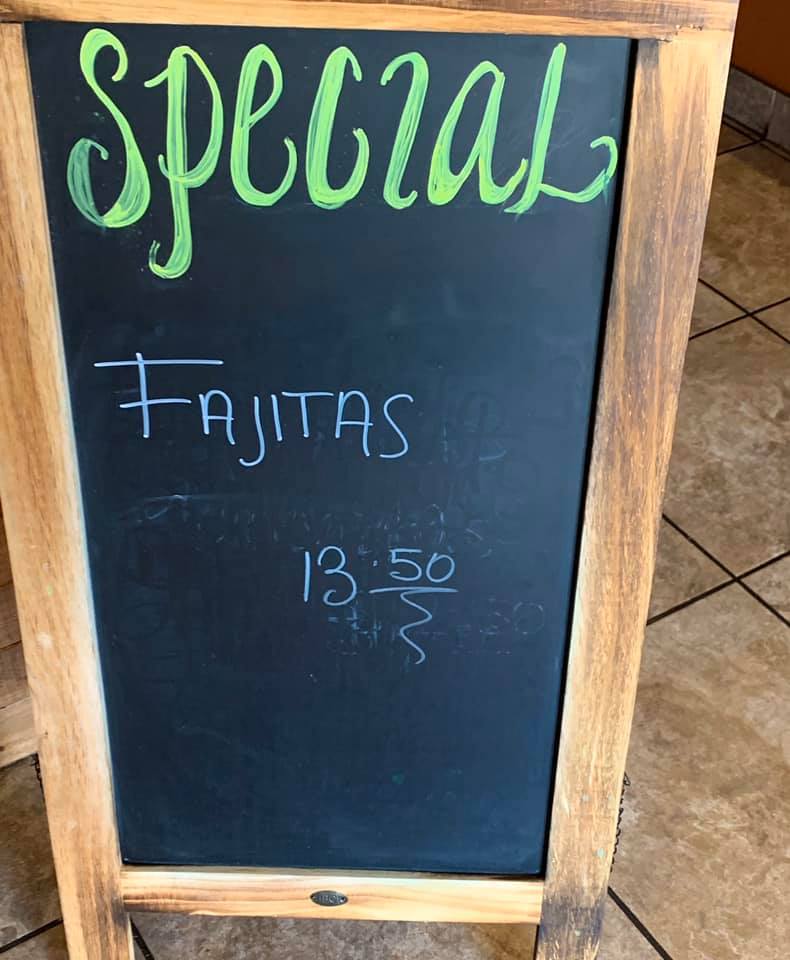 Special
FAJITAS
13.50